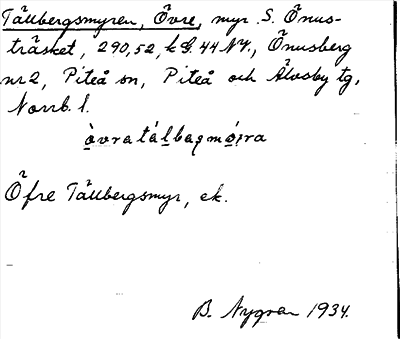 Tällbergsmyren, Övre, myr S. Önus-
träsket, 290,52, k G. 44 NV., Önusberg
nr 2, Piteå sn, Piteå och Älvsby tg,
Norrb. l.
òvratálbasmó̱i̯ra
Öfre Tällbergsmyr, ek.
B. Nygren 1934.